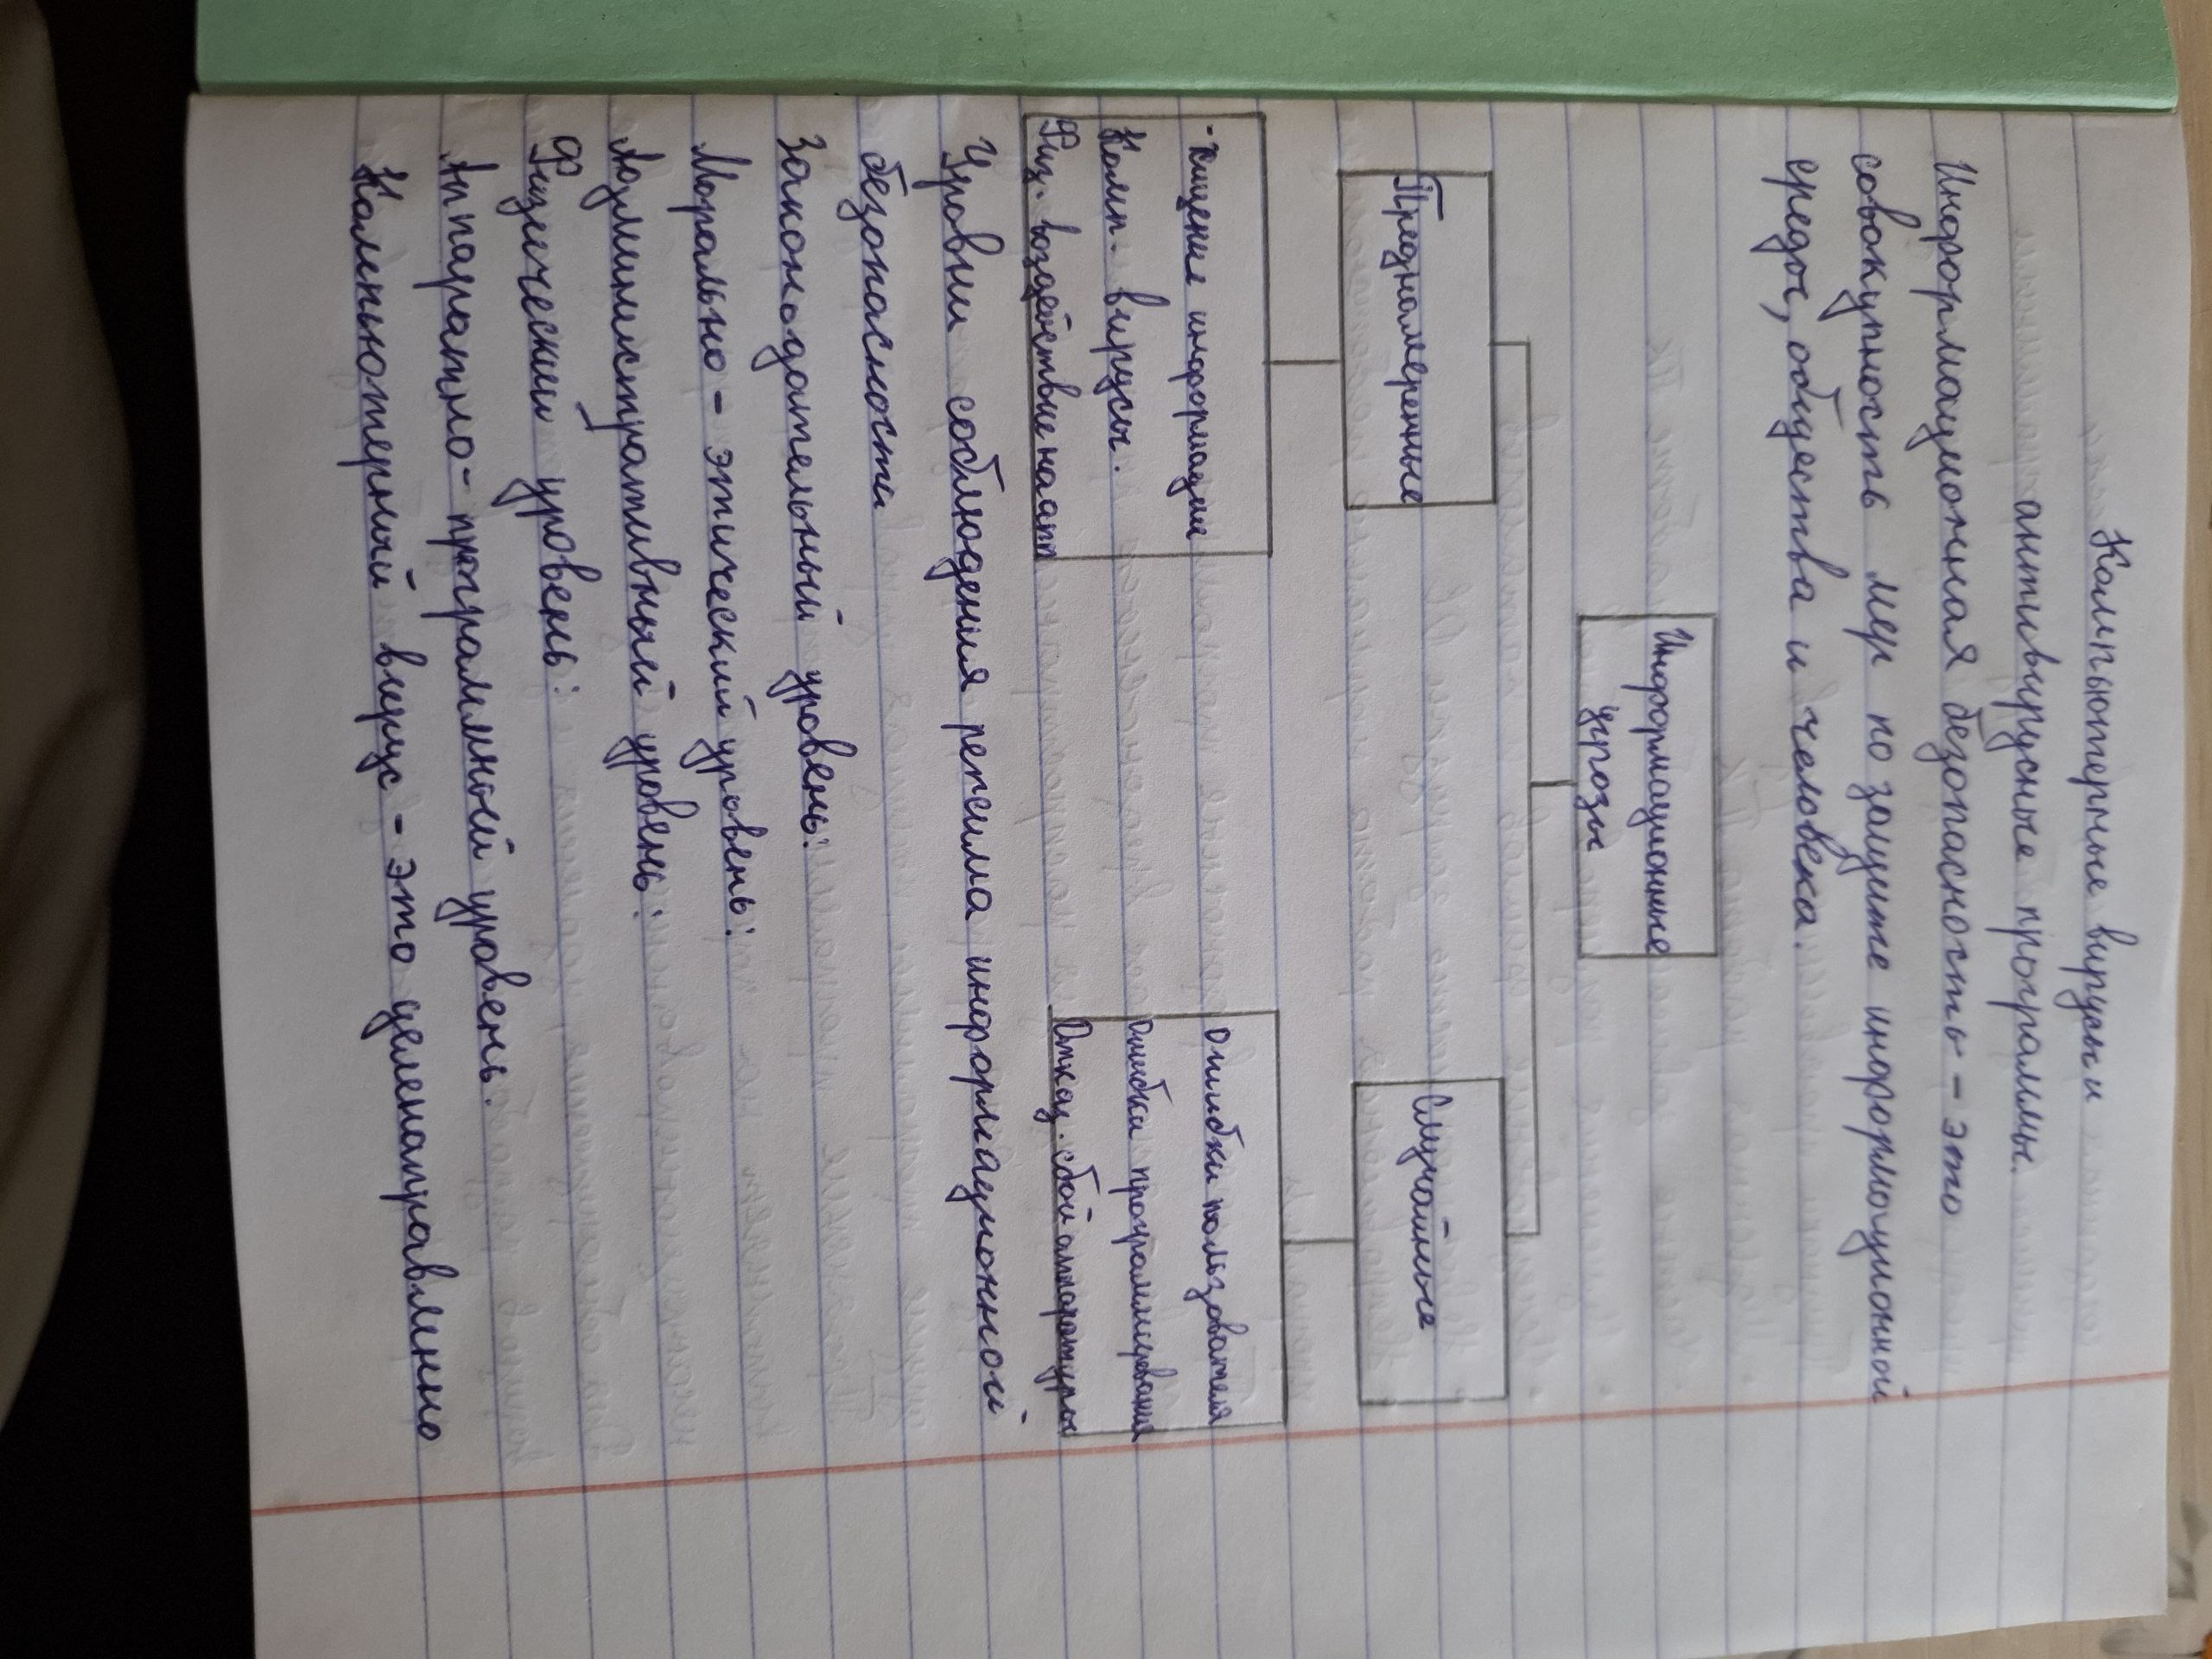 Компьютерные вирусы и
антивирусные программы.
Информационная безопасность - это
совокупность мер по защите информационной
среды, общества и человека.
Информационные
угрозы
Преднамеренные
Случайные
- хищение информации
Комп. вирусы.
Физ. воздействие на апп
Ошибки пользователя
Ошибки программирования
Отказ. сбой аппаратуры
Уровни соблюдения режима информационной
безопасности
Законодательный уровень:
Морально - этический уровень:
Административный уровень:
Физический уровень:
Аппаратно - программный уровень.
Компьютерный вирус - это целенаправленно